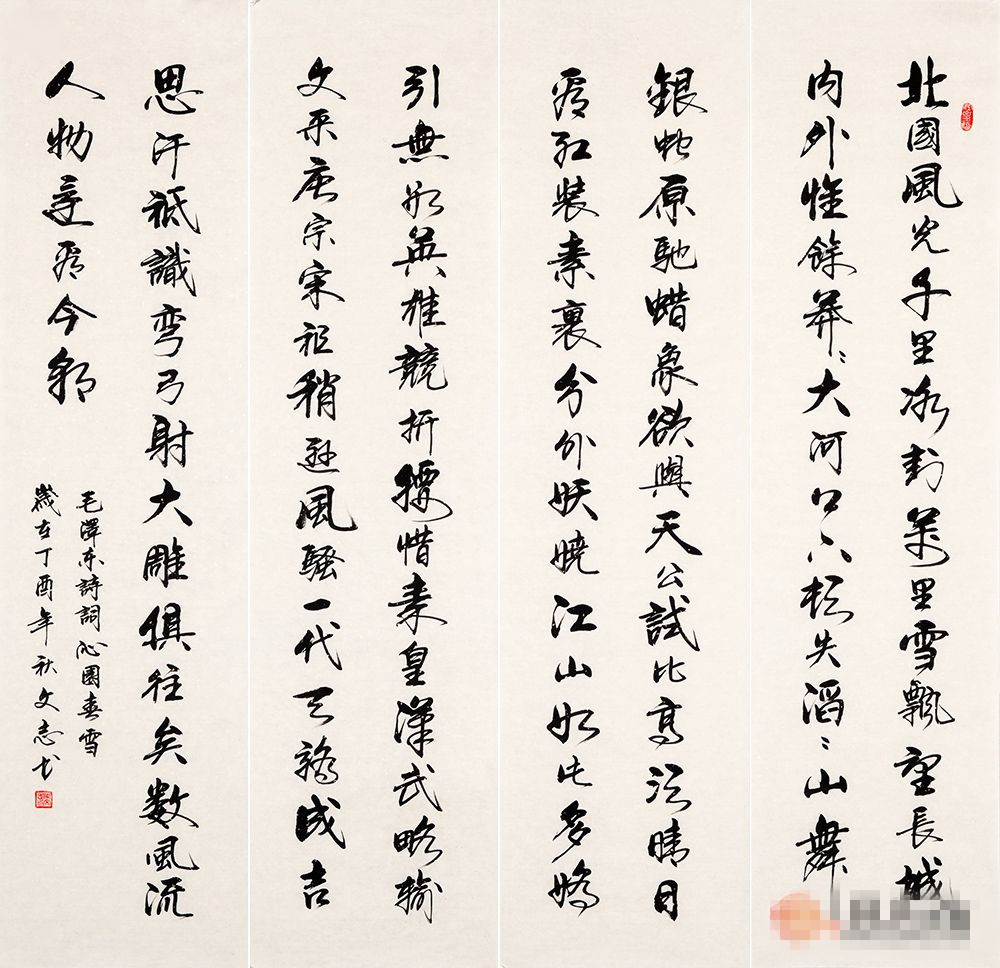 北國風光千里冰封萬里雪飄望長城
内外惟餘莽〻大河上下頓失滔〻山舞
銀蛇原馳蜡象欲與天公試比高須晴日
看红装素裹分外妖嬈江山如此多嬌
引無數英雄競折腰惜秦皇漢武略輸
文采唐宗宋祖稍遜風騷一代天驕成吉
思汗祗識弯弓射大雕俱往矣数風流
人物還看今朝
毛澤東詩詞沁園春雪
歲在丁酉年秋文志书